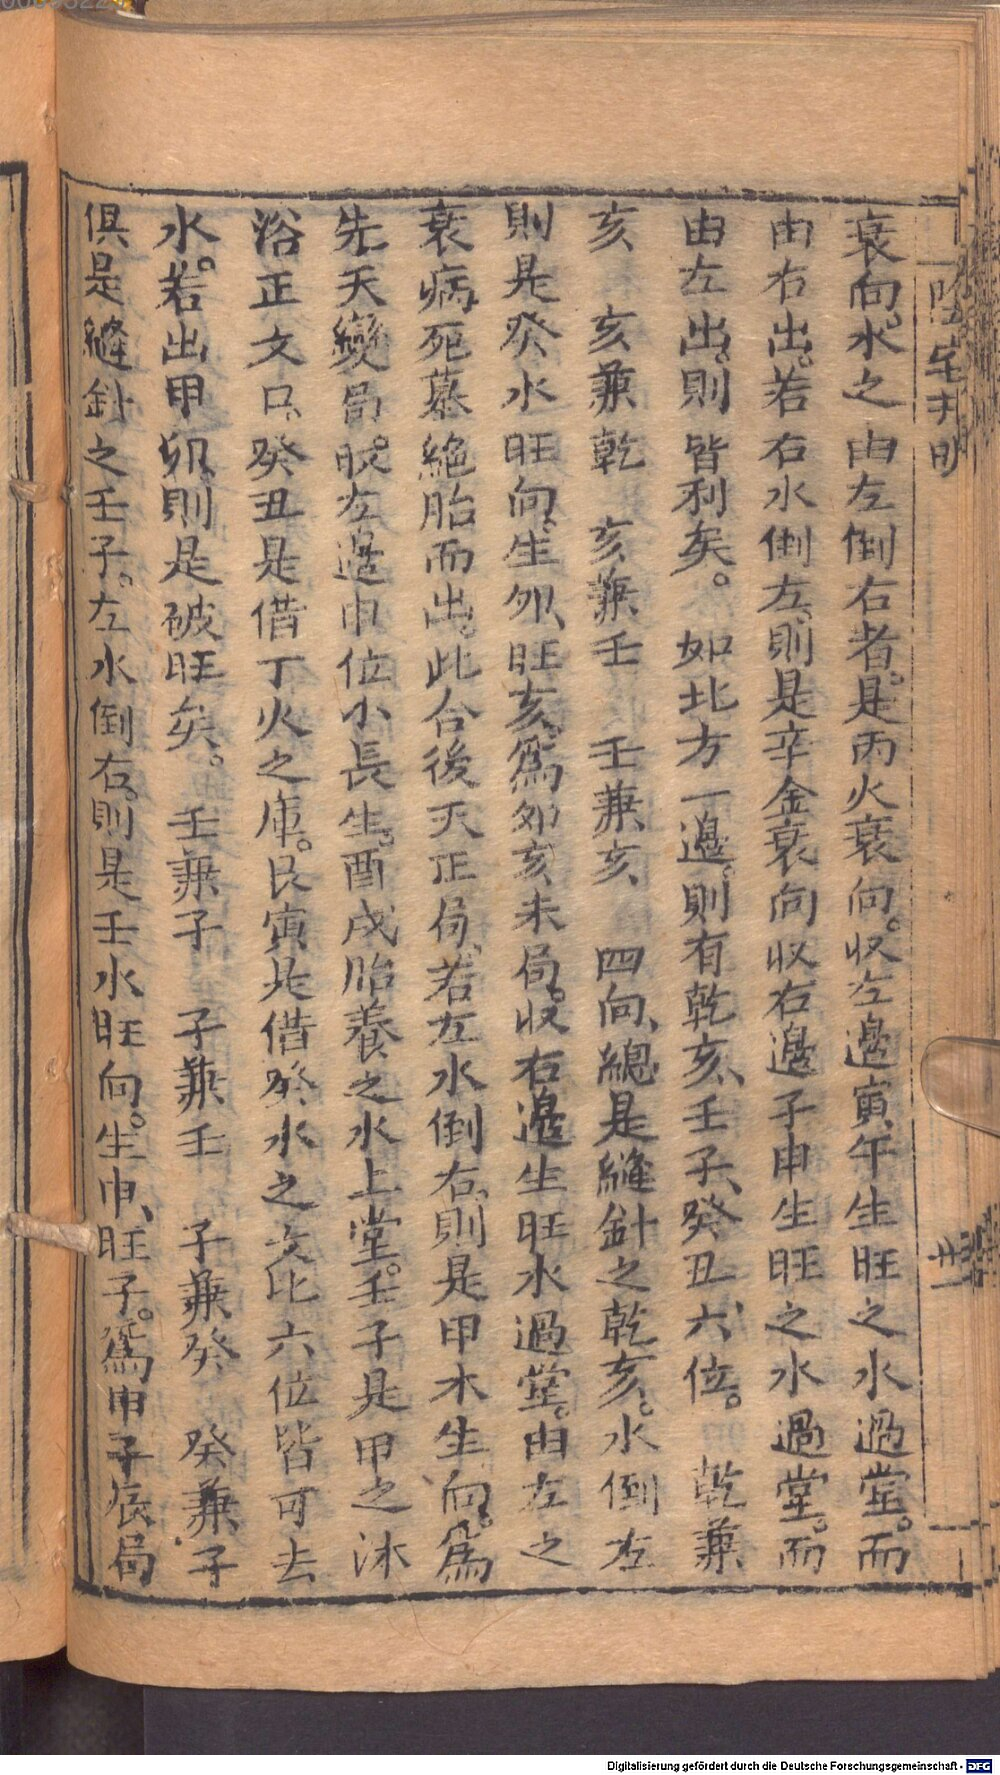 衰向。水之由左倒右者。是丙火衰向。収左邊寅午生旺之水過堂。而
由右出。若右水倒左。則是辛金衰向収右邊子申生旺之水過堂。而
由左出。則皆利矣。 如北方一邊。則有乾亥、壬子、癸丑六位。 乾兼
亥 亥兼乾 亥兼壬 壬兼亥 四向、總是縫針之乾亥。水倒左
則是癸水旺向。生夘、旺亥、爲夘亥未局。収右邊生旺水過堂。由左之
衰病死墓絶胎而出。此合後天正局、若左水倒右、則是甲木生向。爲
先天變局。収左邊申位小長生。酉戌胎養之水上堂。壬子是甲之沐
浴正文曰、癸丑是借丁火之庫。艮寅是借癸水之文比六位皆可去
水。若出甲卯、則是破旺矣。 壬兼子 子兼壬 子兼癸 癸兼子
俱是縫針之壬子。左水倒右。則是壬水旺向。生申、旺子。爲申子辰局
廿一